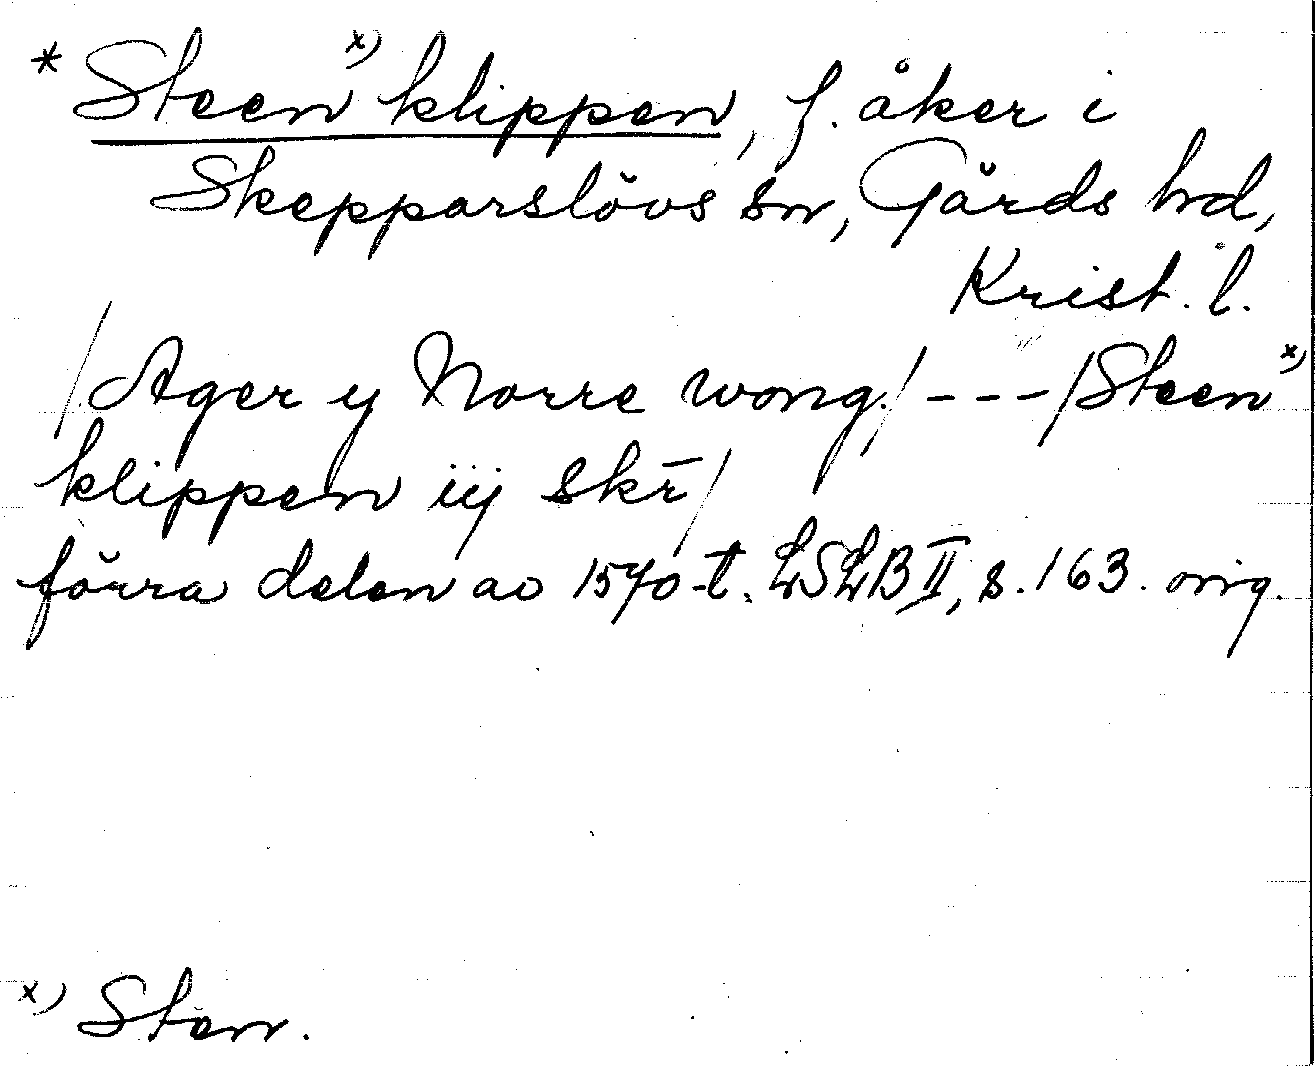 * Steen x) klippen, f. åker i
Skepparslövs sn, Gärds hd,
Krist. l.
/Ager y Norre wong./ - - - /Steen x)
klippen iij skr̄/
förra delen av 1570-t. LSLB II, s. 163. orig.
x) Sten.